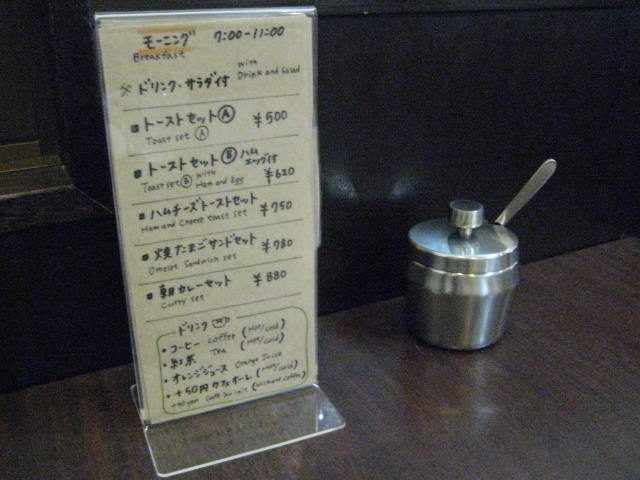 モーニング 7:00-11:00
Breakfast
※ドリンク・サラダ付 with Drink and Salad
■トーストセットⒶ ¥500
Toast set Ⓐ
■トーストセットⒷ ハムエッグ付 ¥620
Toast set Ⓑ with Ham and Egg
■ハムチーズトーストセット ¥750
Ham and Cheese toast set
■焼たまごサンドセット ¥780
Omelet Sandwich set
■朝カレーセット ¥880
Curry set
ドリンク
・コーヒー coffee (Hot/cold)
・紅茶 Tea (Hot/cold)
・オレンジジュース Orange Juice
・+50円カフェオーレ (Hot/cold)
+50yen Café au lait